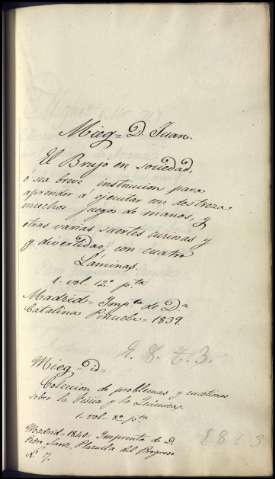 Mieg = D. Juan.
El Brujo en Sociedad,
ó sea breve instrucion para
aprender á ejecutar con destreza
muchos juegos de manos, y
otras varias suertes curiosas y
divertidas, con cuatro
Láminas.
1. vol. 12º pta
Madrid = Impta de Da
Catalina Piñuela = 1839.
E. 8. t. 3.
Mieg = D.
Coleccion de problemas y cuestiones
sobre la Fisica y la Quimica.
1. vol. 8º pta
Madrid = 1840. Imprenta de D.
Sanz, Plazuela del Progreso
Nº 7.